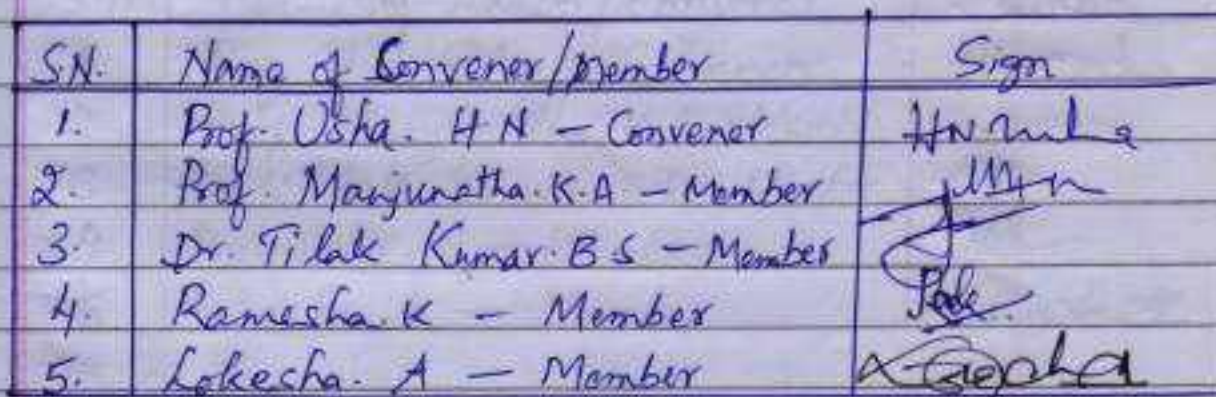 SN. Name of Convener/member Sign
1. Prof. Usha. H N - Convener
2. Prof. Manjunatha. K.A - Member
3. Dr. Tilak Kumar. B S - Member
4. Ramesha. K - Member
5. Lokesha. A - Member